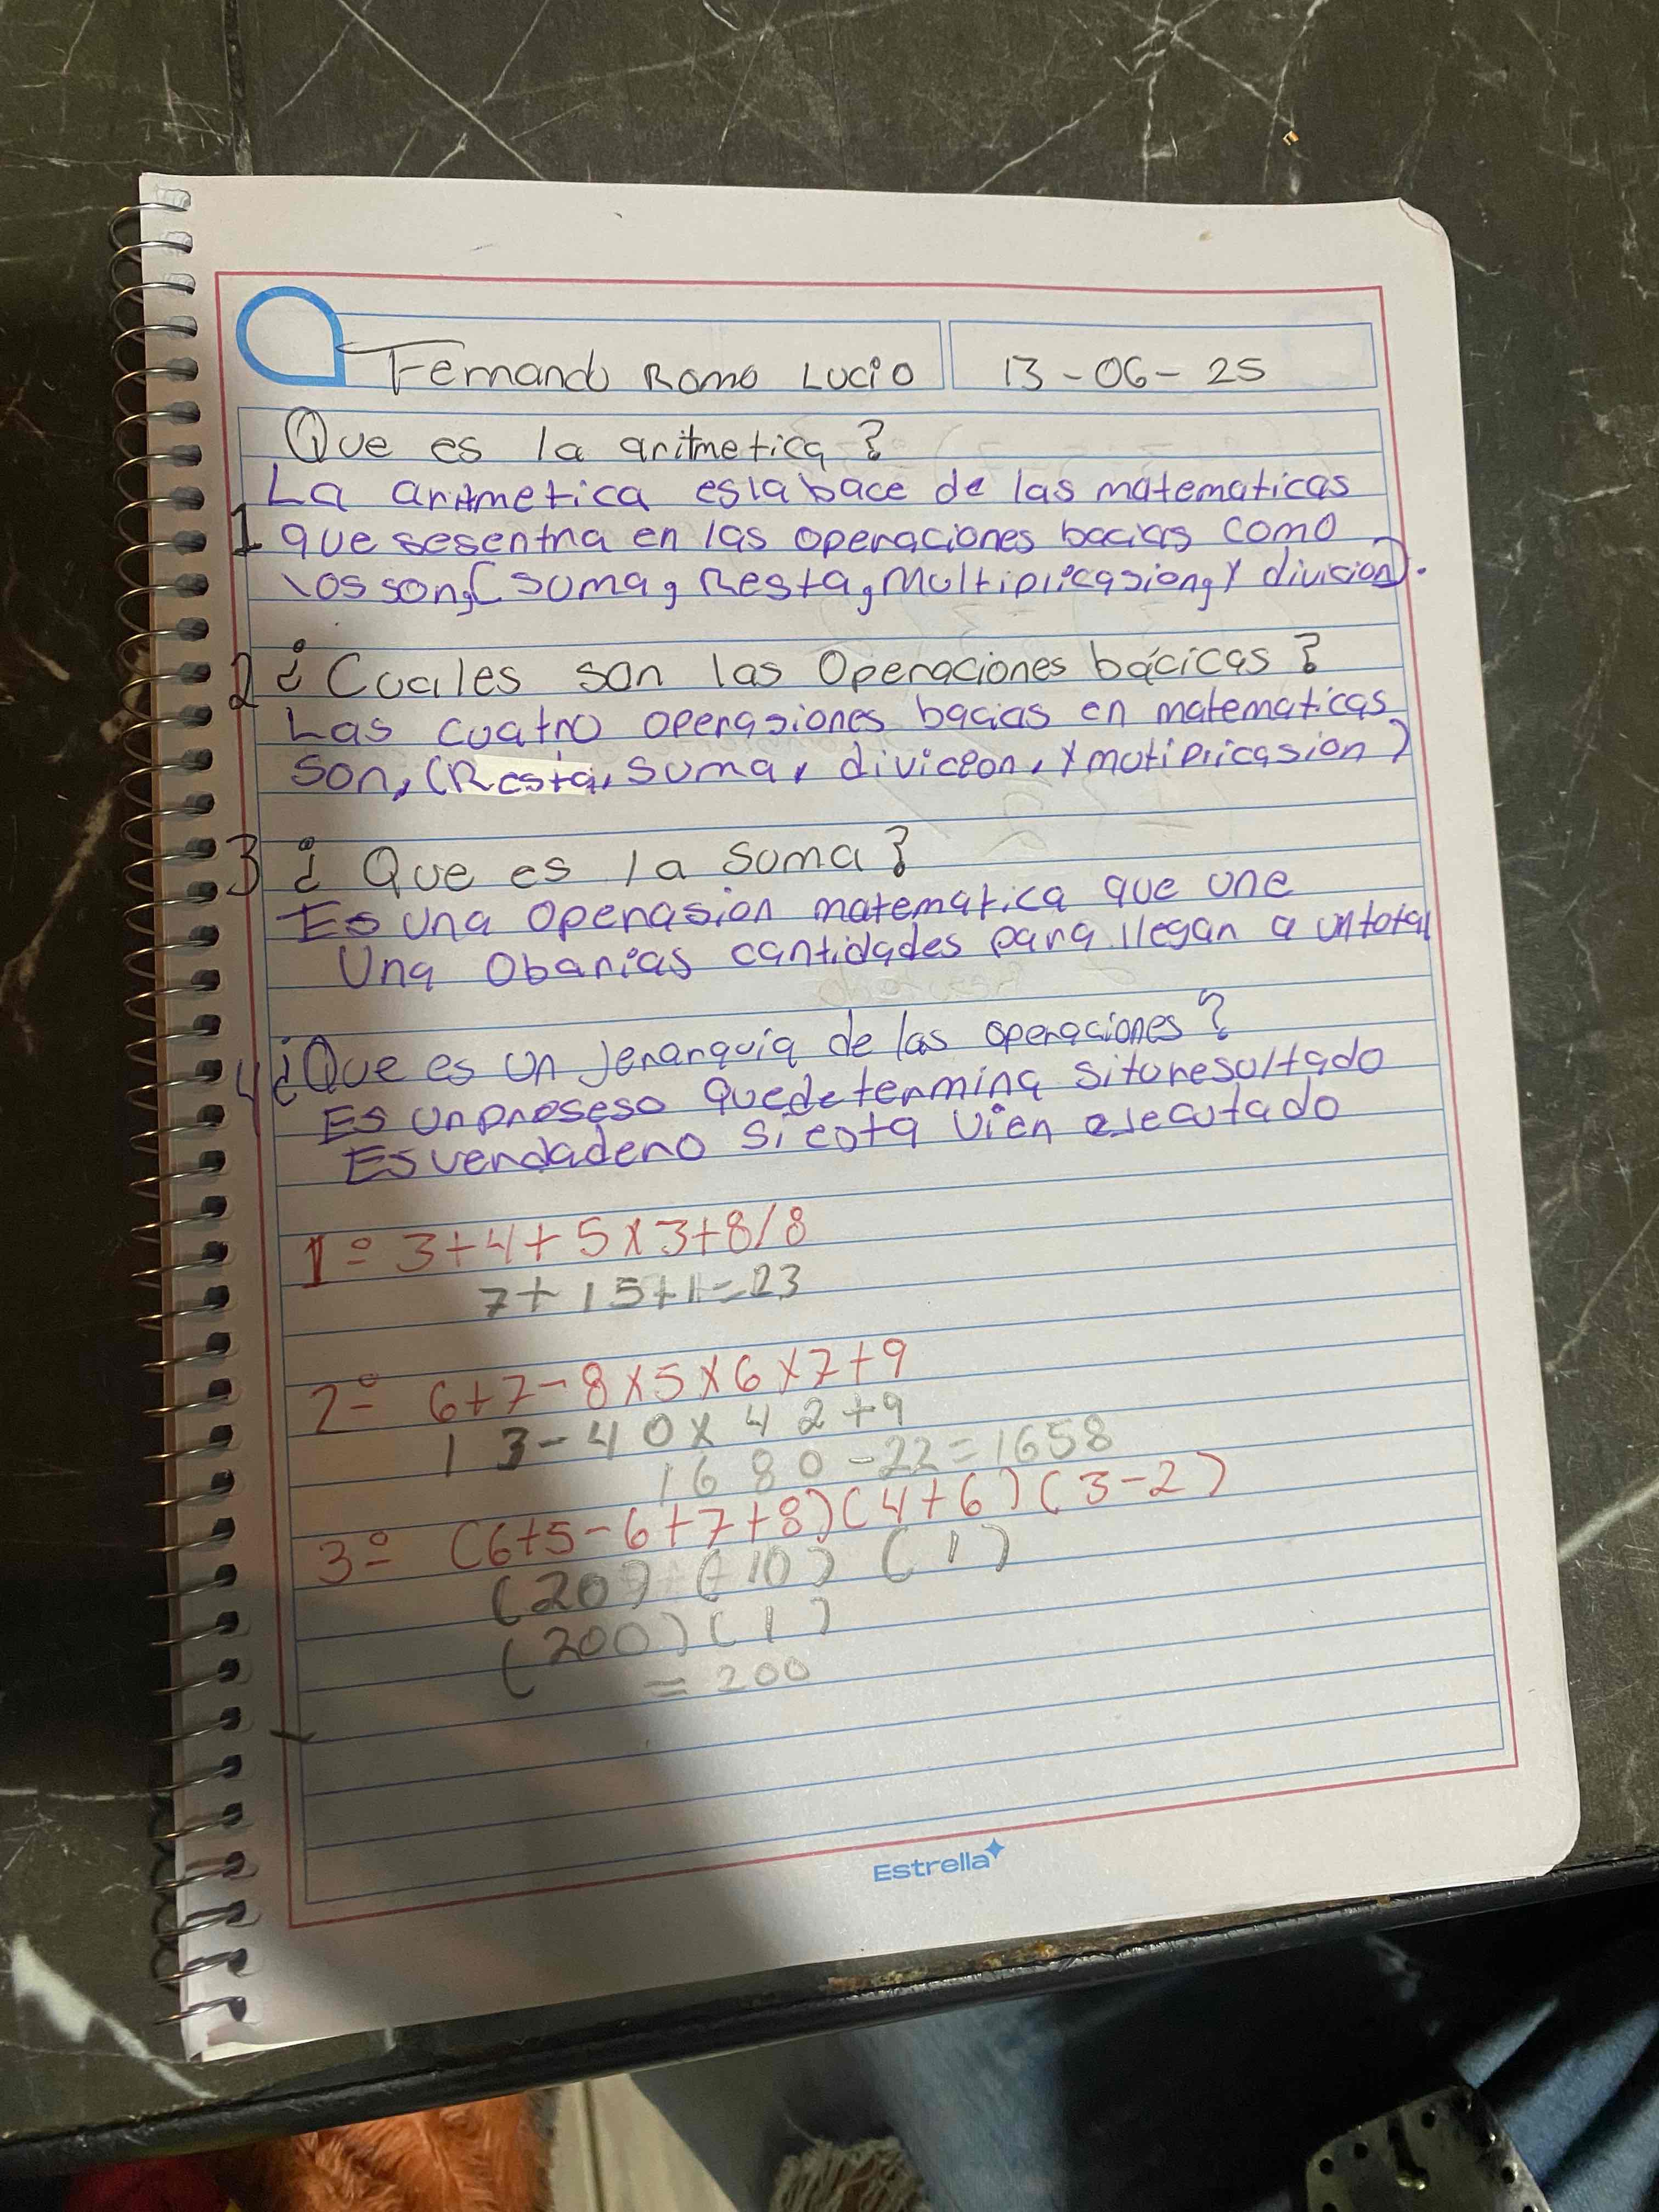 Fernando Romo Lucio 13-06-25
Que es la aritmetica?
La aritmetica es la bace de las matematicas
1 que sesentra en las operaciones bacias como
los son, (suma, Resta, multiplicasion, y division).
2 ¿Cuales son las Operaciones bácicas?
Las cuatro operasiones bacias en matematicas
son, (Resta, suma, diviceon, y motipricasion)
3 ¿Que es la suma?
Es una operasion matematica que une
Una Obarias cantidades para llegar a un total
4 ¿Que es un jerarquia de las operaciones?
Es un proseso que determina si tu resultado
Es verdadero si esta vien ejecutado
1º 3+4+5x3+8/8
7+15+1=23
2º 6+7-8x5x6x7+9
13-40x42+9
1680-22=1658
3º (6+5-6+7+8)(4+6)(3-2)
(20)(10)(1)
(200)(1)
=200
Estrella